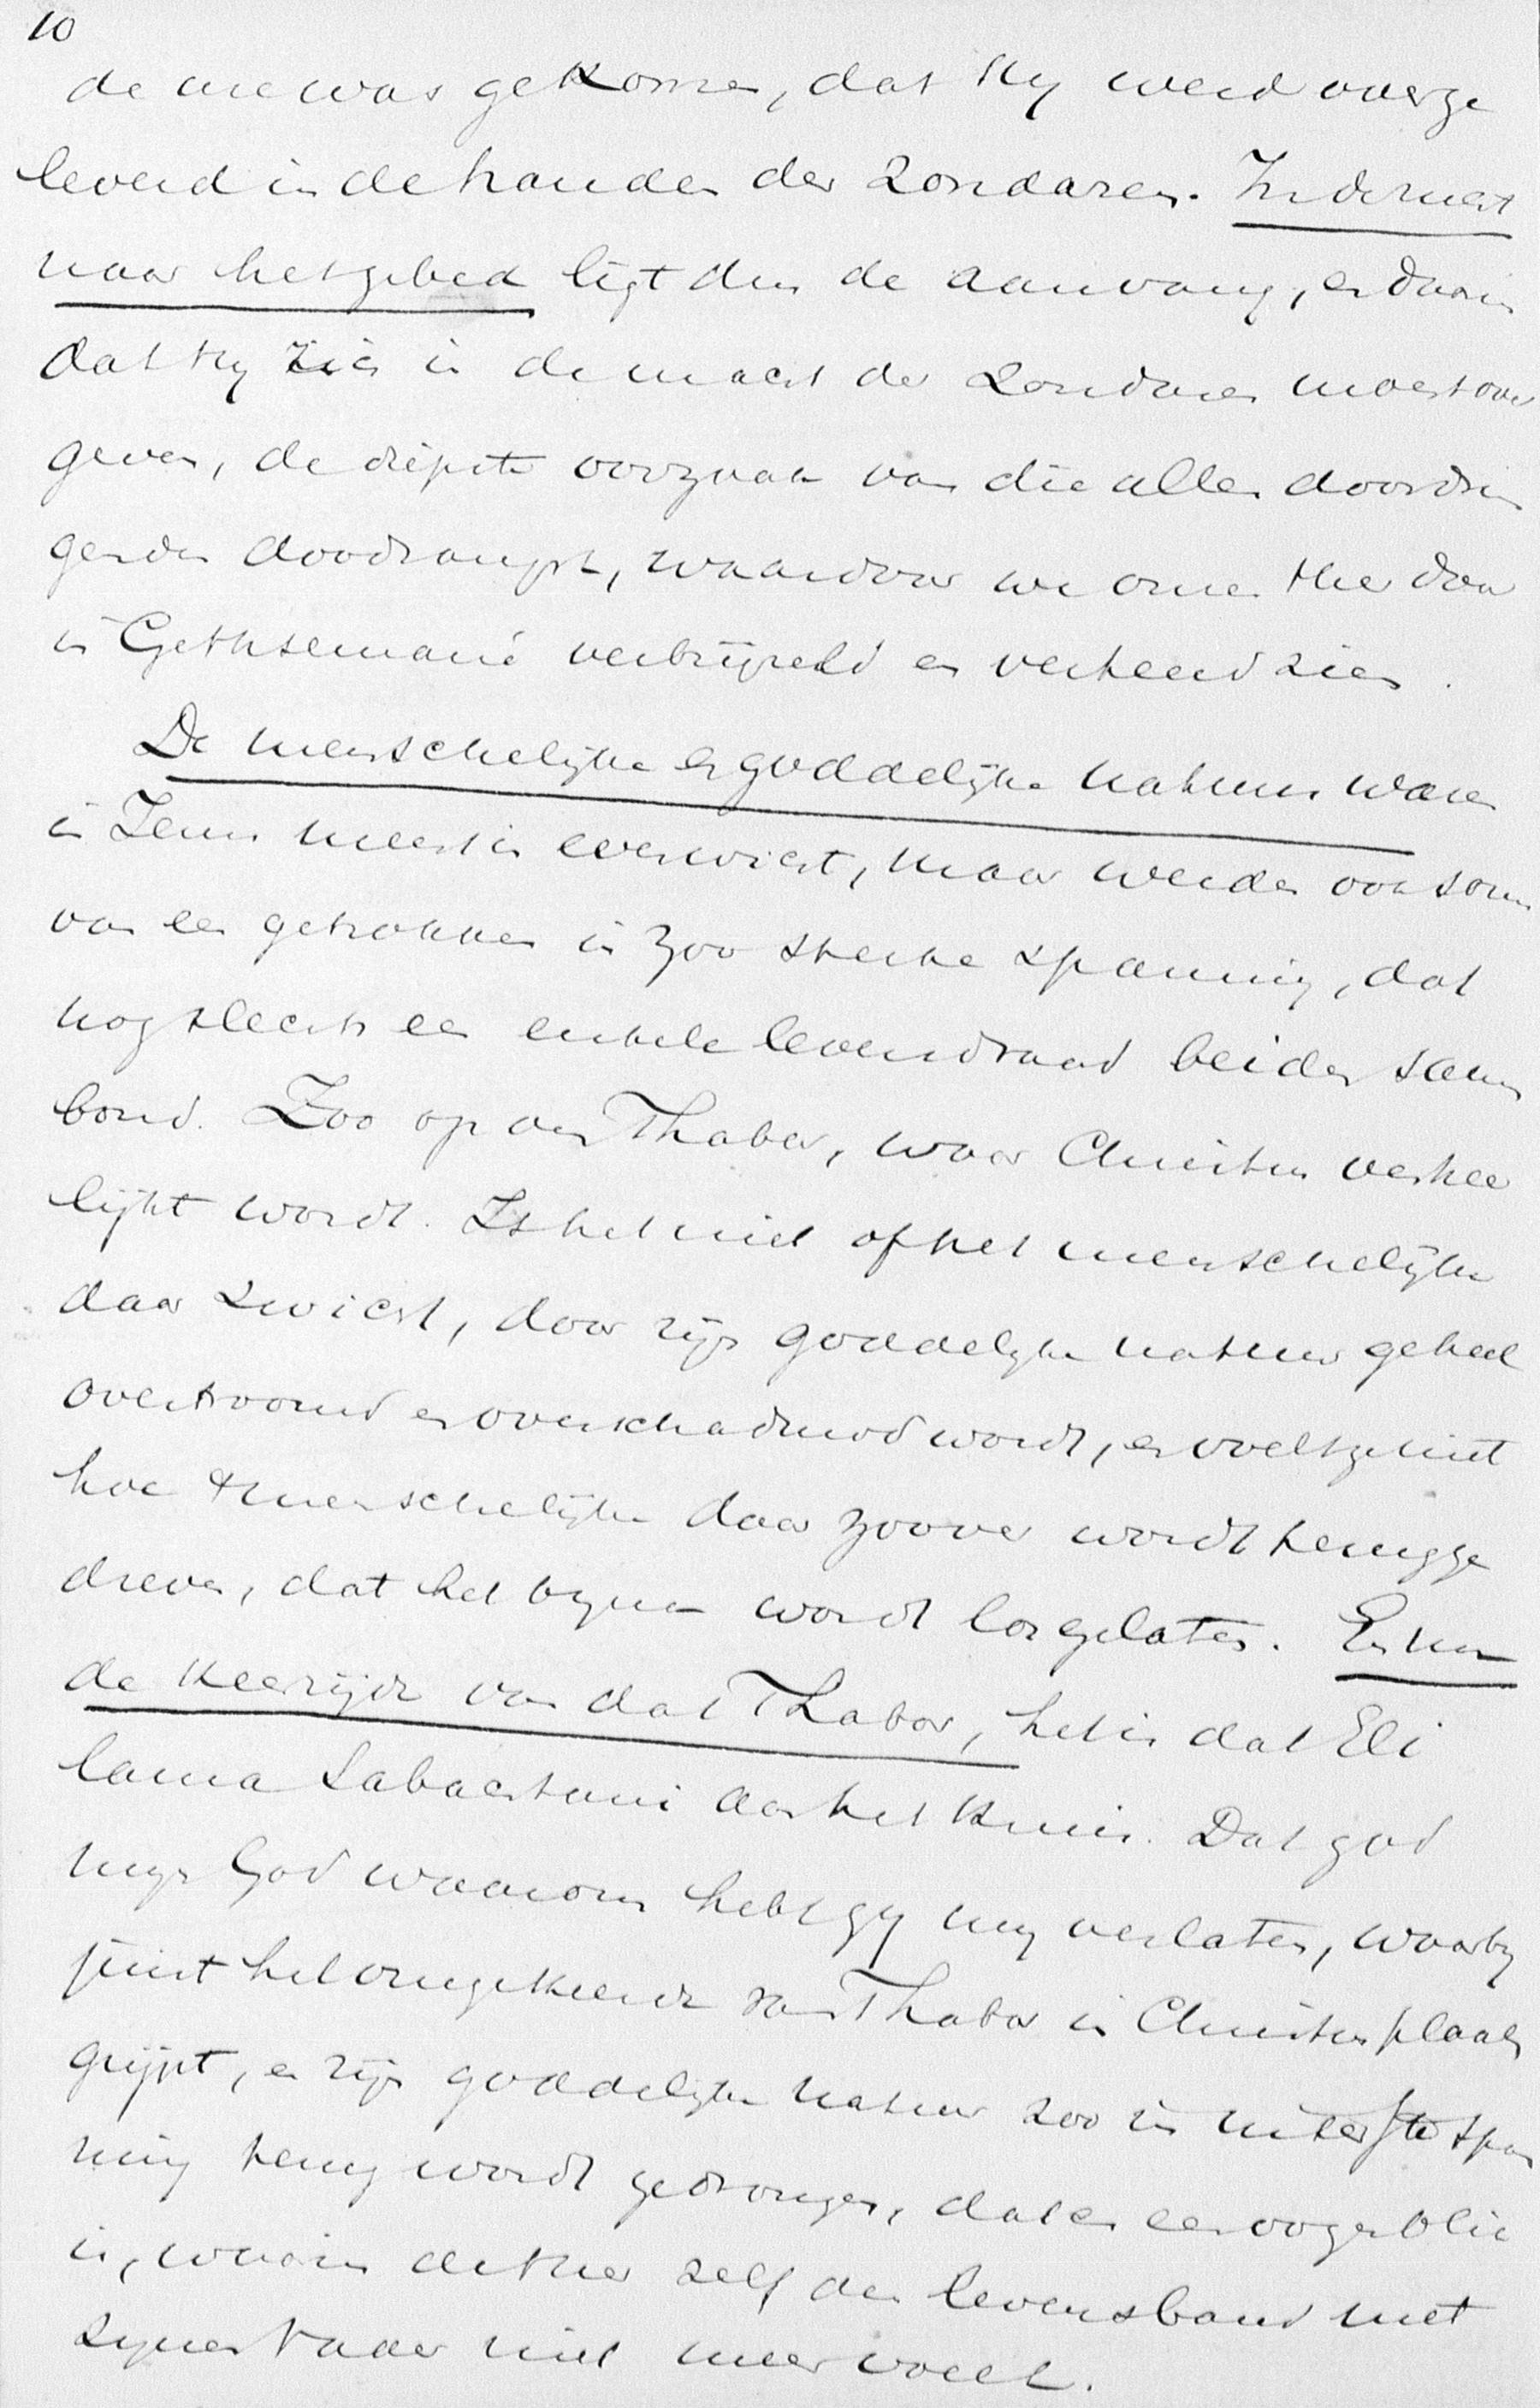 10
de ure was gekomen, dat Hij werd overge
leverd in de handen der Zondaren. In de rust
naar het gebed ligt dus de aanvang, en daarin
dat Hij zich in de macht der Zondaren moest over
geven, de diepste oorzaak van die alles doordrin
genden doodsangst, waardoor we onzen Heer daar
in Gethsemané verbrijzeld en verteerd zien.
De menschelijke en goddelijke natuur waren
in Jezus meest in evenwicht, maar werden ook soms
van een getrokken in zoo sterke spanning, dat
nog slechts een enkele levensdraad beiden samen
bond. Zoo op den Thabor, waar Christus verheer
lijkt wordt. Is het niet of het menschelijke
daar zwicht, door zijn goddelijke natuur geheel
overstroomd en overschaduwd wordt, en voelt ge niet
hoe 't menschelijke daar zoover wordt terugge
dreven, dat het bijna wordt losgelaten. En nu
de keerzijde van dat Thabor, het is dat Eli
lama Sabachtani aan het kruis. Dat god
mijn God waarom hebt gij mij verlaten, waarbij
juist het omgekeerde van Thabor in Christus plaats
grijpt, en zijn goddelijke natuur zoo in uiterste span
ning terug wordt gedrongen, dat er een oogenblik
is, waarin de Heer zelf den levensband met
zijnen Vader niet meer voelt.